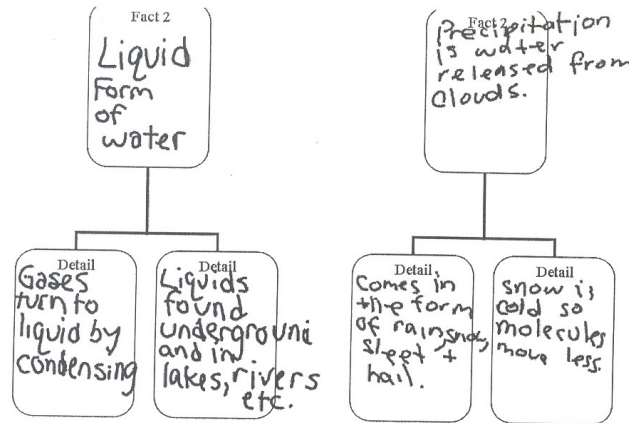 Fact 2
Liquid
form
of
water
Detail
Gases
turn to
liquid by
condensing
Detail
Liquids
found
underground
and in
lakes, rivers
etc.
Fact 2
Precipitation
is water
released from
clouds.
Detail
Comes in
the form
of rain, snow,
sleet +
hail.
Detail
snow is
cold so
molecules
move less.